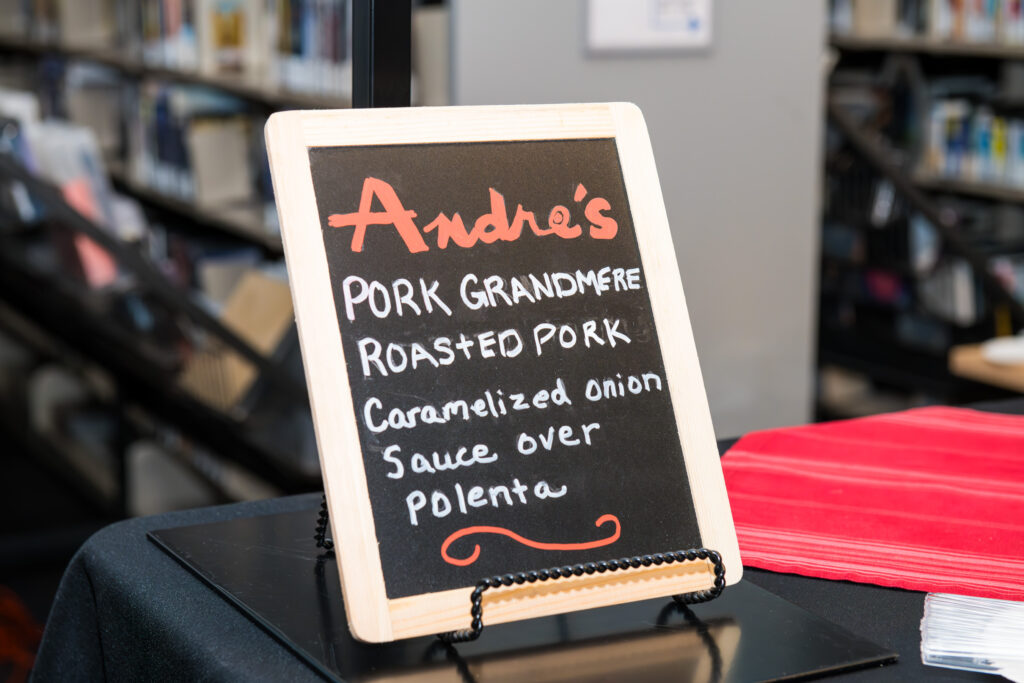 Andre's
PORK GRANDMERE
ROASTED PORK
Caramelized onion
Sauce over
Polenta